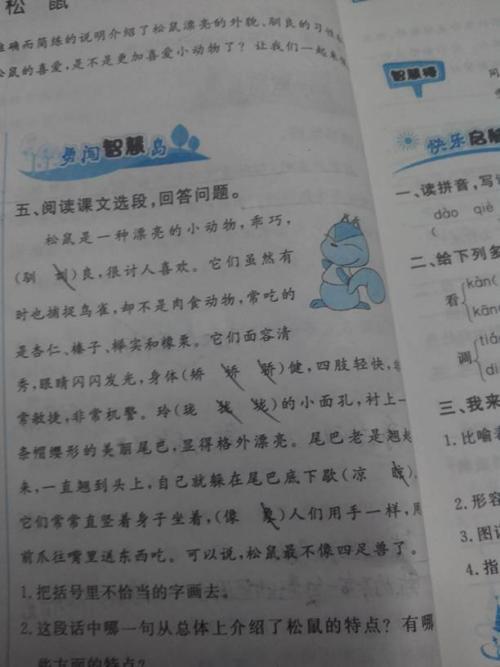 松鼠
准确而简练的说明介绍了松鼠漂亮的外貌、驯良的习性
松鼠的喜爱,是不是更加喜爱小动物了?让我们一起来
勇闯智慧岛
五、阅读课文选段,回答问题。
松鼠是一种漂亮的小动物,乖巧,
(驯 训)良,很讨人喜欢。它们虽然有
时也捕捉鸟雀,却不是肉食动物,常吃的
是杏仁、榛子、榉实和橡栗。它们面容清
秀,眼睛闪闪发光,身体(矫 娇 骄)健,四肢轻快,
常敏捷,非常机警。玲(珑 拢 垅)的小面孔,衬上一
条帽缨形的美丽尾巴,显得格外漂亮。尾巴老是翘起
来,一直翘到头上,自己就躲在尾巴底下歇(凉 晾)
它们常常直竖着身子坐着,(像 象)人们用手一样,用
前爪往嘴里送东西吃。可以说,松鼠最不像四足兽了。
1.把括号里不恰当的字画去。
2.这段话中哪一句从总体上介绍了松鼠的特点?有哪
些方面的特点?
智慧棒
快乐启航
一、读拼音,写
dào qiè
(
二、给下列多
看 kān(
kàn(
调 tiá
di
三、我来
1.比喻
2.形容
3.图
4.指